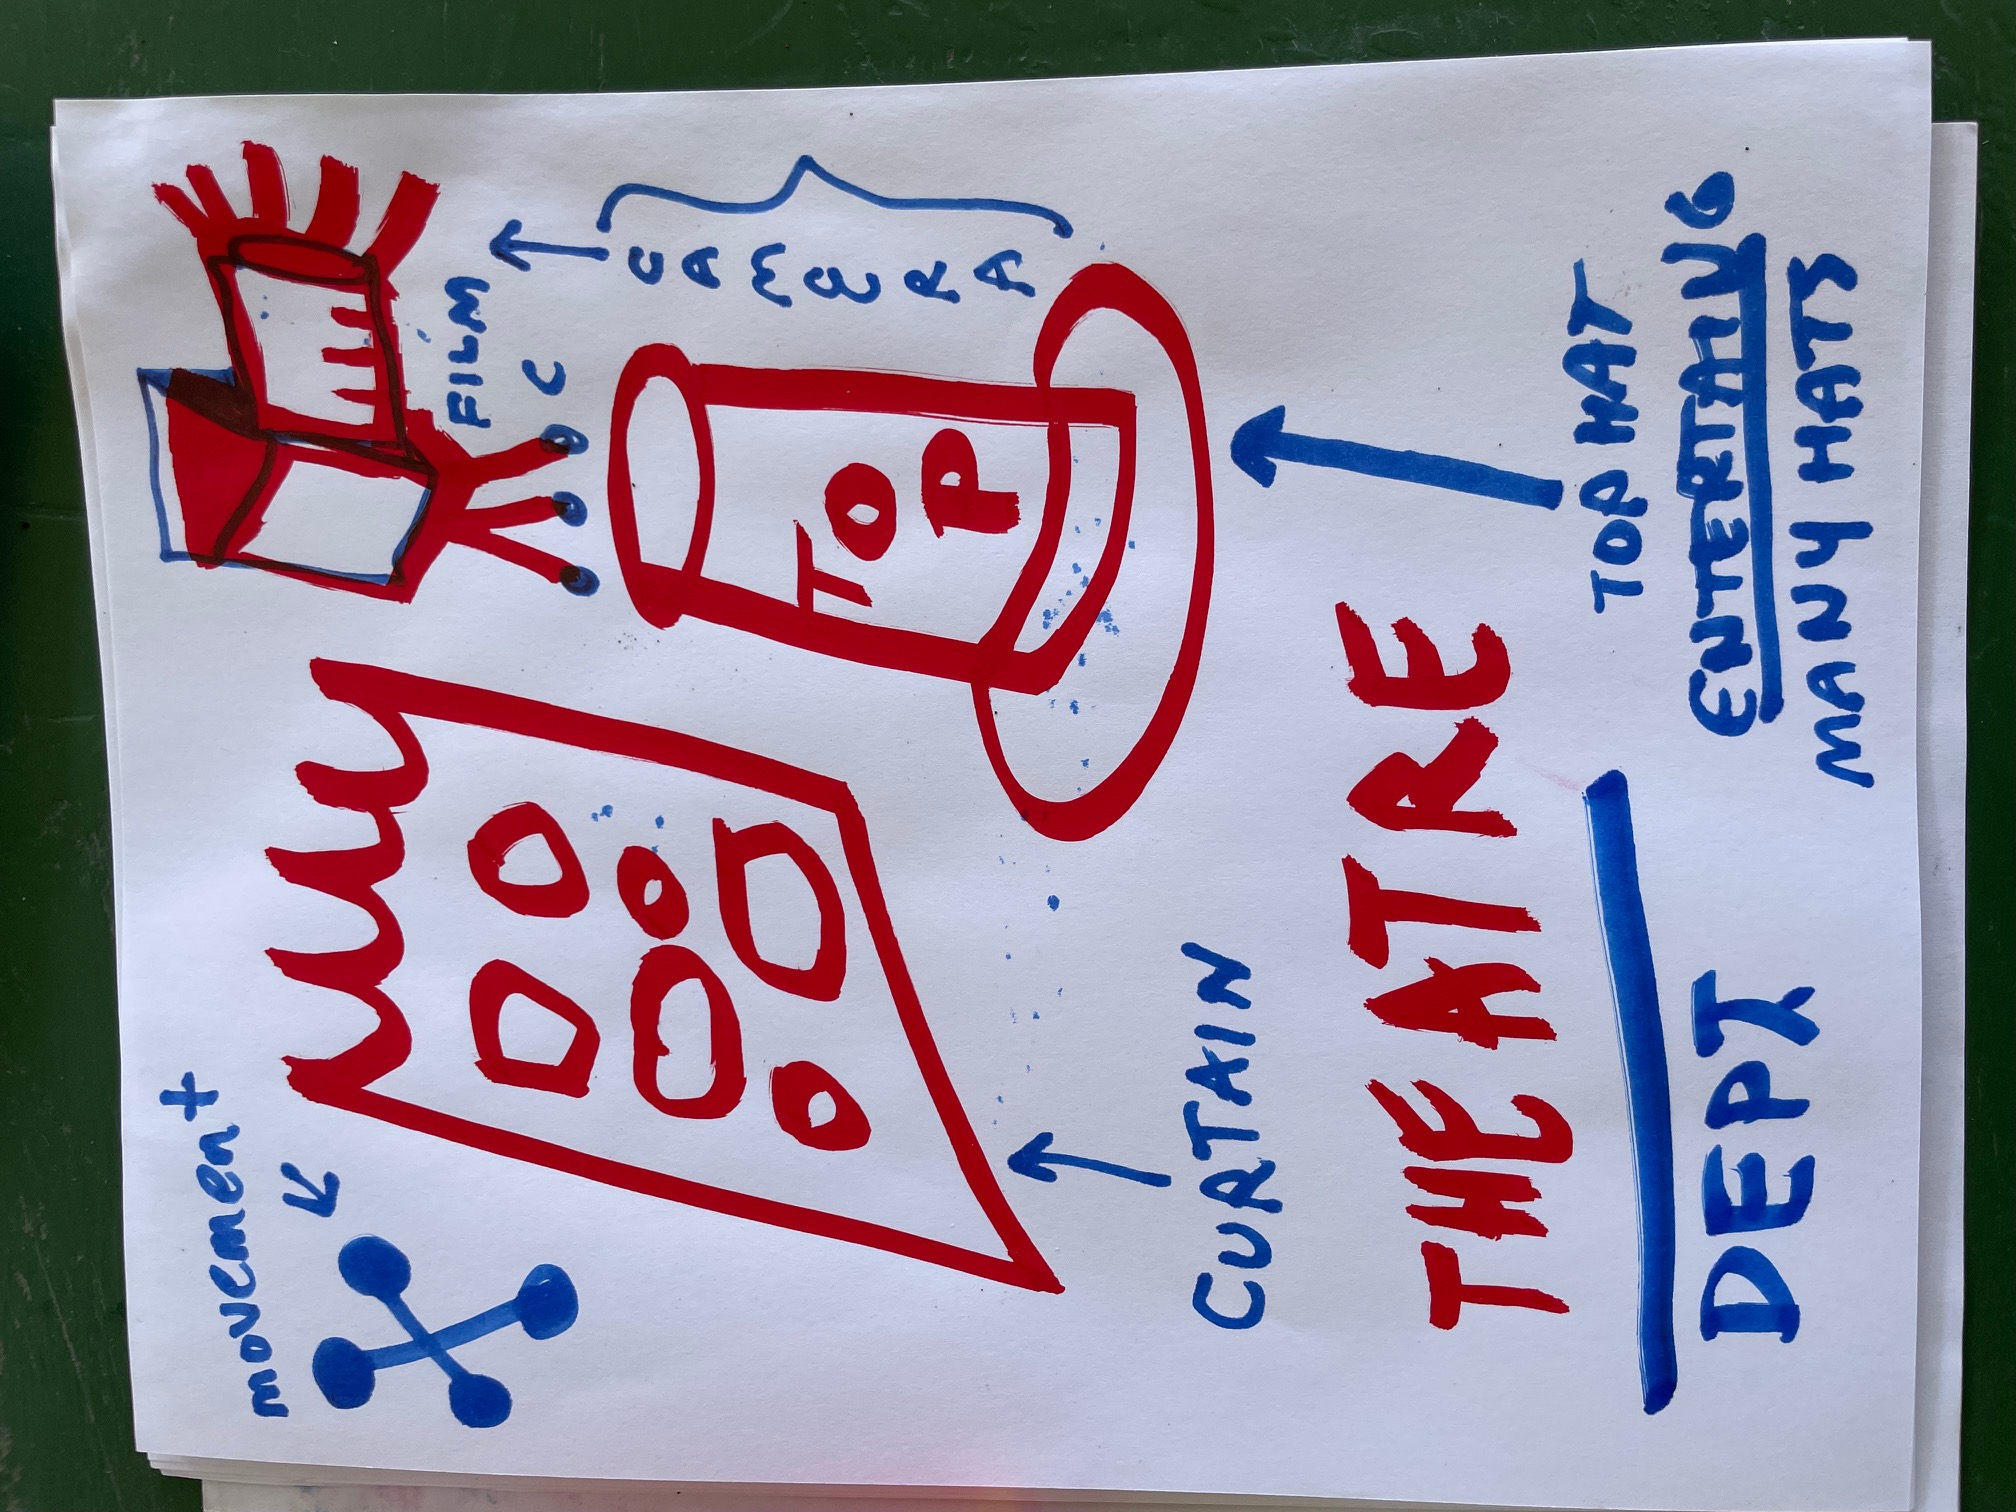 movement
FILM
C
CAMERA
TOP
CURTAIN
THEATRE
DEPT
TOP HAT
ENTERTAING
MANY HATS